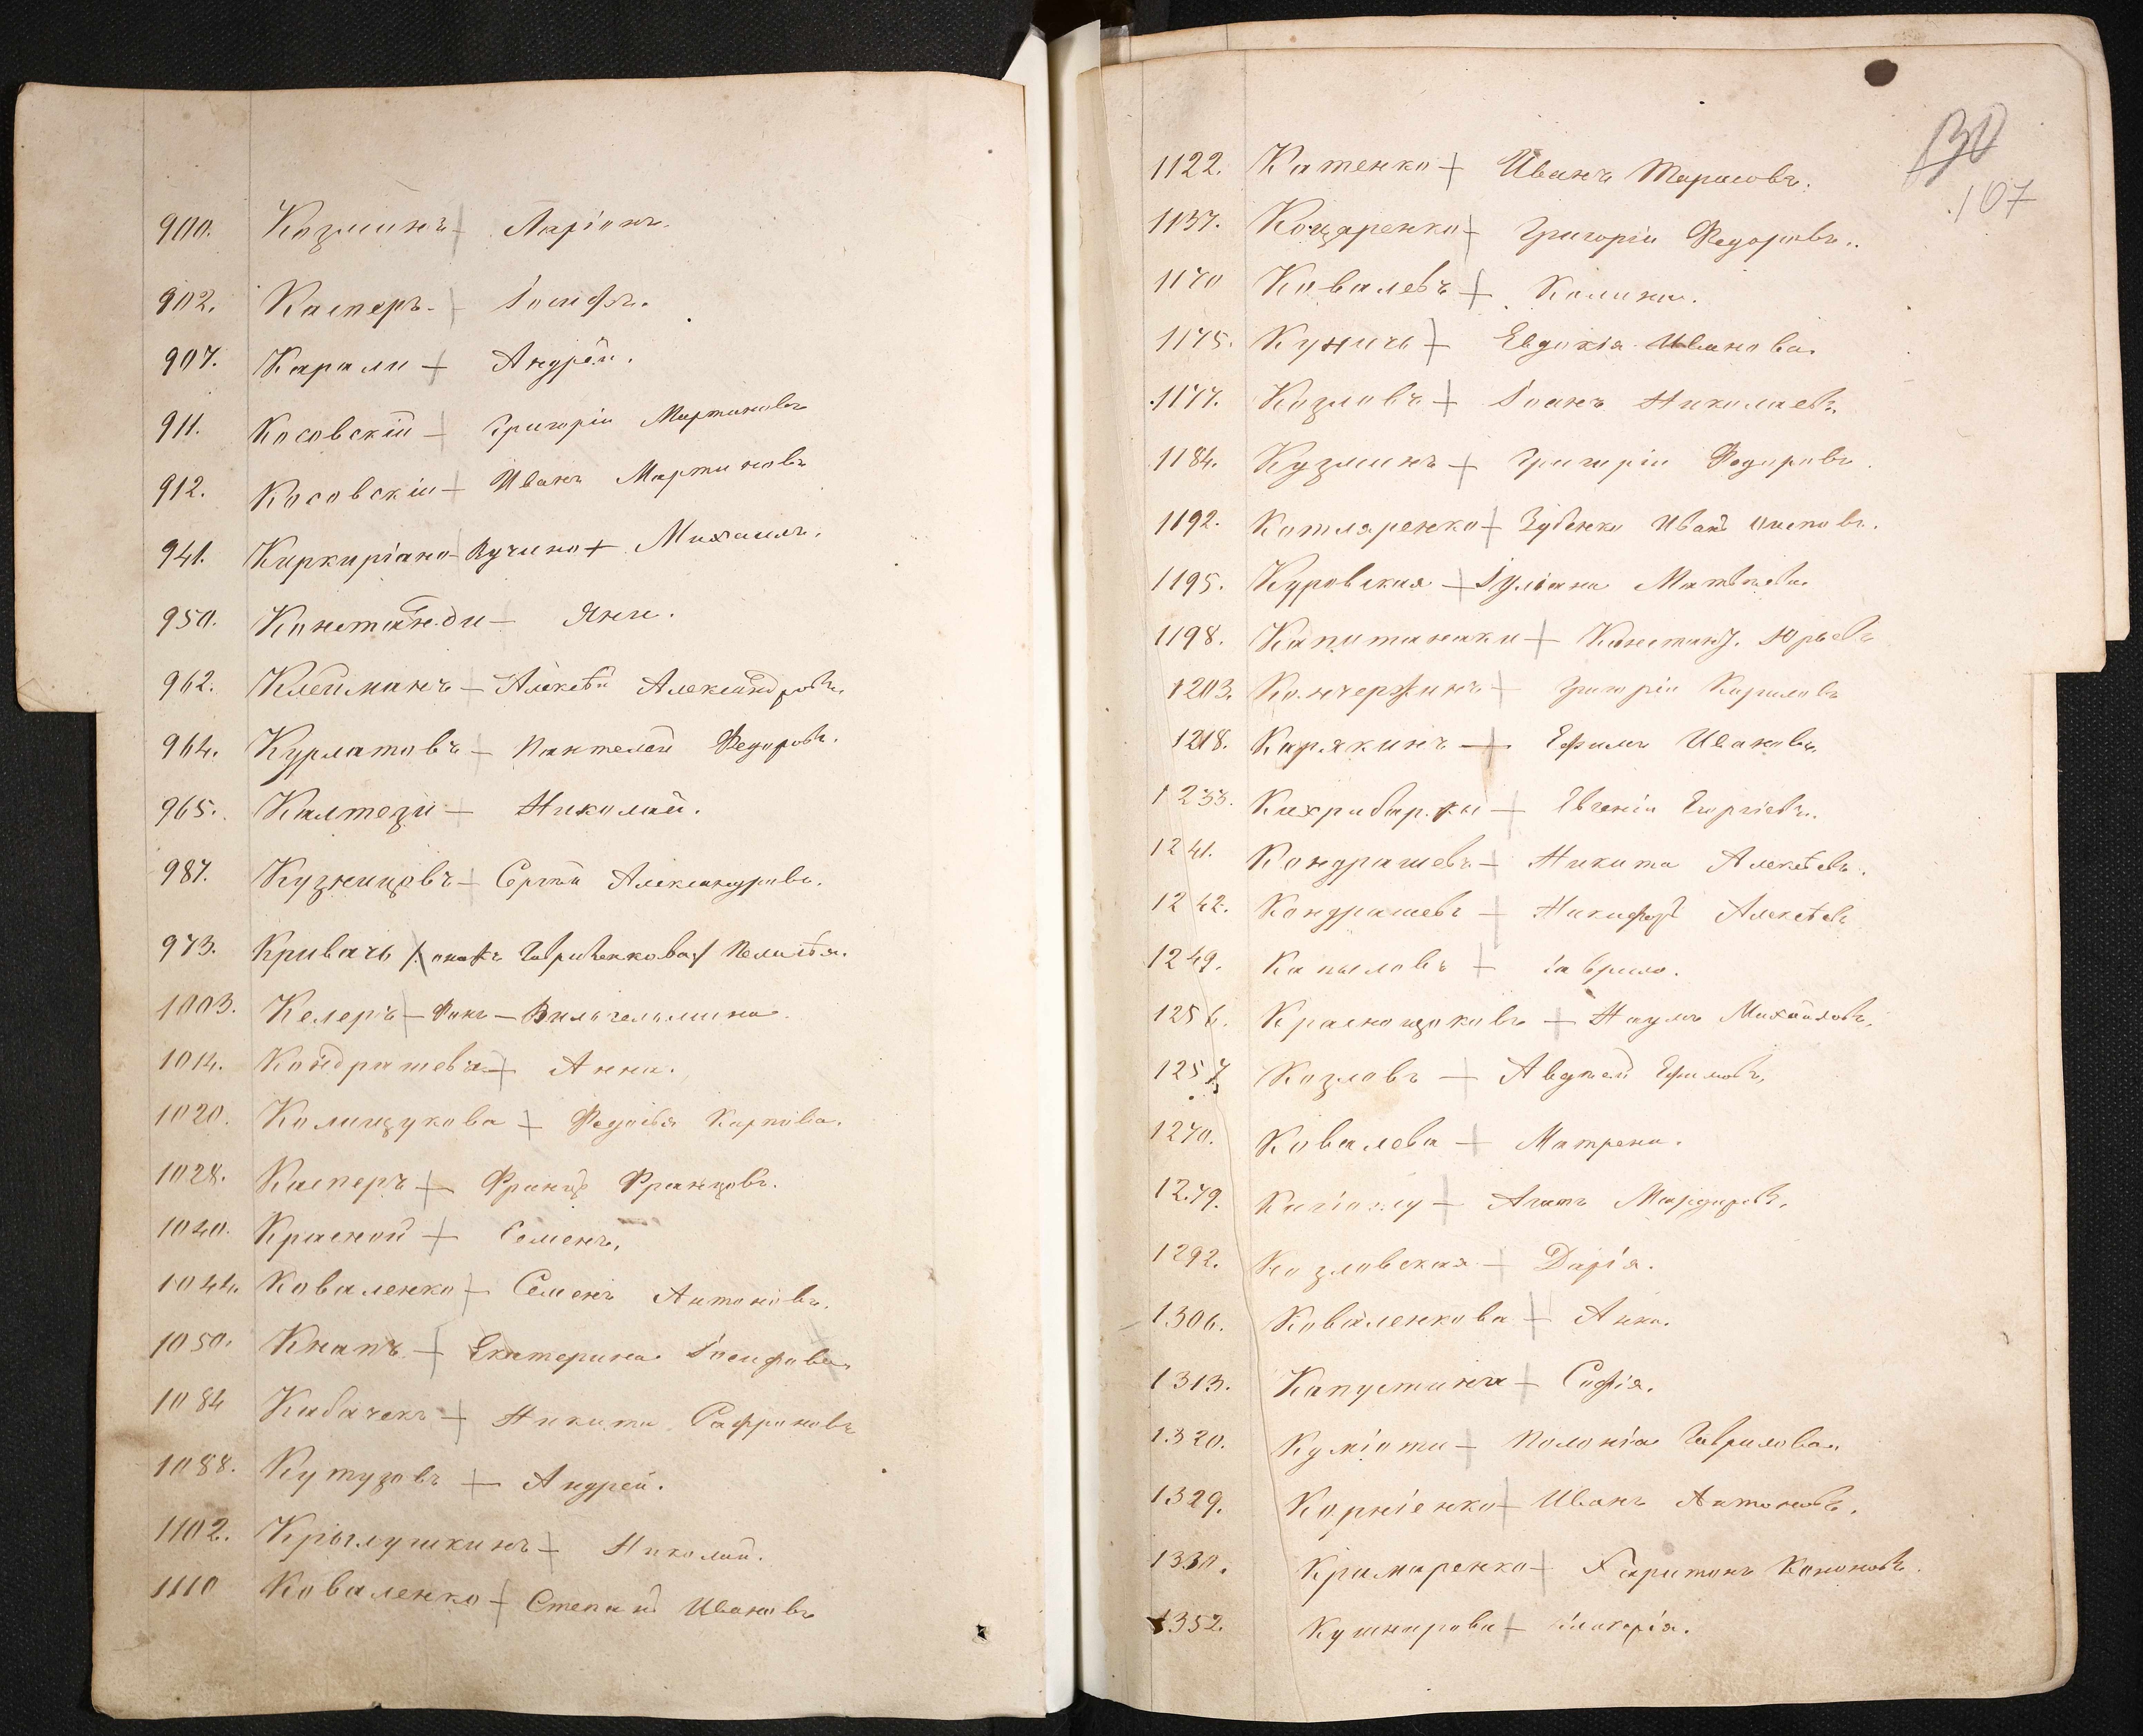 900. Козминъ Ларіонъ.
902. Касперъ Іосифъ.
907. Карали Андрей.
911. Косовскій Григорій Мартиновъ
912. Косовскій Иванъ Мартиновъ
941. Киркиріано-Вучино Михаилъ.
950. Константинди Яни.
962. Клейманъ Алексѣй Александровъ
964. Курлатовъ Пантелей Федоровъ.
965. Калтези Николай.
987. Кузнецовъ Сергѣй Александровъ.
973. Кривачь онаже Гавриленкова Пелагѣя.
1003. Келеръ Фонъ Вильгельмина.
1014. Кондрашева Анна.
1020. Колищукова Федосья Карпова.
1028. Касперъ Францъ Францовъ.
1040. Красной Семенъ.
1044. Коваленко Семенъ Антоновъ.
1050. Кнапъ Екатерина Іосифова
1084 Кабачекъ Никита Сафроновъ
1088. Кутузовъ Андрей.
1102. Крылушкинъ Николай.
1110 Коваленко Степанъ Ивановъ
130
107
1122. Катенко Иванъ Тарасовъ.
1137. Коцаренко Григорій Федоровъ.
1170 Ковалевъ Калина.
1175. Куничь Евдокія Иванова
1177. Козловъ Іоанъ Николаевъ
1184. Кузминъ Григорій Федоровъ
1192. Котляренко Зубенко Иванъ Осиповъ.
1195. Куровская Іуліана Матвѣева
1198. Капитанаки Констант. Юрьевъ
1203. Кончержинъ Григорій Кириловъ
1218. Карякинъ Ефимъ Ивановъ
1233. Евгеній Георгіевъ.
1241. Кондрашевъ Никита Алексѣевъ.
1242. Кондрашевъ Никифоръ Алексѣевъ
1249. Капыловъ Гаврило.
1256. Краснощоковъ Наумъ Михайловъ.
1257. Козловъ Авдѣей Ефимовъ
1270. Ковалева Матрена.
1279.
1292. Козловская Дарія.
1306. Коваленкова Анна.
1313. Капустина Софія.
1320. Куміоти Полонія Гаврилова
1329. Корніенко Иванъ Антоновъ.
1330. Крамаренко Харитонъ Кононовъ.
1352. Кушнирова Гликерія.